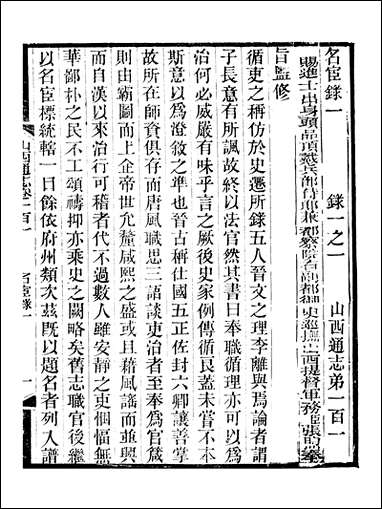 山西通志第一百一
名宦錄一　　錄一之一
賜進士出身頭品頂戴兵部侍郎兼都察院右副都御史巡撫山西提督軍務臣張煦奉
旨監修
循吏之稱仿於史遷所錄五人晉文之理李離與焉論者謂
子長意有所諷故終以法官然其書曰奉職循理亦可以爲
治何必威嚴有味乎言之厥後史家例傳循良蓋未嘗不本
斯意以爲澄敘之準也晉古稱仕國五正佐封六卿讓善掌
故所在師資俱存而唐風職思三語談吏治者至奉爲官橅
則由霸圖而上企帝世允釐咸熙之盛或且藉風謠而並興
而自漢以來可稽者代不過數人雖安靜之吏悃愊無
華鄙朴之民不工頌禱抑亦乘史之闕略矣舊志職官後繼
以名宦標統轄一目餘依府州類次茲既以題名者列入譜
山西通志卷一百一　名宦錄一　一